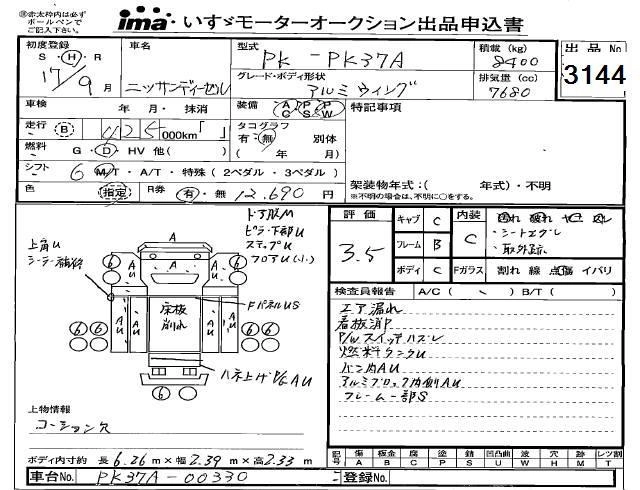 ㊟赤太枠内は必ず
ボールペンで
ご記入下さい。
ima・いすゞモーターオークション出品申込書
初度登録
S・H・R
17/9月
車名
ニッサンディーゼル
型式
PK-PK37A
積載(kg)
8400
出品No
3144
グレード・ボディ形状
アルミウィング
排気量(cc)
7680
車検 年 月・抹消
装備 AC PS PW
特記事項
走行 B 425000km「 」
タコグラフ
有・無 別体
( 年 月)
燃料 G・D・HV 他( )
シフト 6 M/T・A/T・特殊(2ペダル・3ペダル)
色 指定 R券 有・無 12,690円
架装物年式:( 年式)・不明
※不明の場合は、不明に○をする。
評価 3.5
キャブ C
フレーム B
ボディ C
内装 C
・シートスグレ
・取外跡
Fガラス 割れ 線 点傷 イバリ
検査員報告 A/C( 、 ) B/T( )
エア漏れ
看板消
P/Wスイッチハズレ
燃料タンクU
バン内AU
アルミブロック内側AU
フレーム一部S
ドア股M
ピラー下部U
ステップU
フロアU(小)
上角U
A
6 6
A A
AU AU AU AU
床板
削れ
FパネルUS
6 6
ハネ上げP/G AU
上物情報
コーション欠
ボディ内寸約 長6.26m×幅2.39m×高2.33m
記号 傷A 板金B 腐C 塗P 錆S 凹凸曲U 波W 穴H 林M レツ割T
車台No. PK37A-00330
登録No.